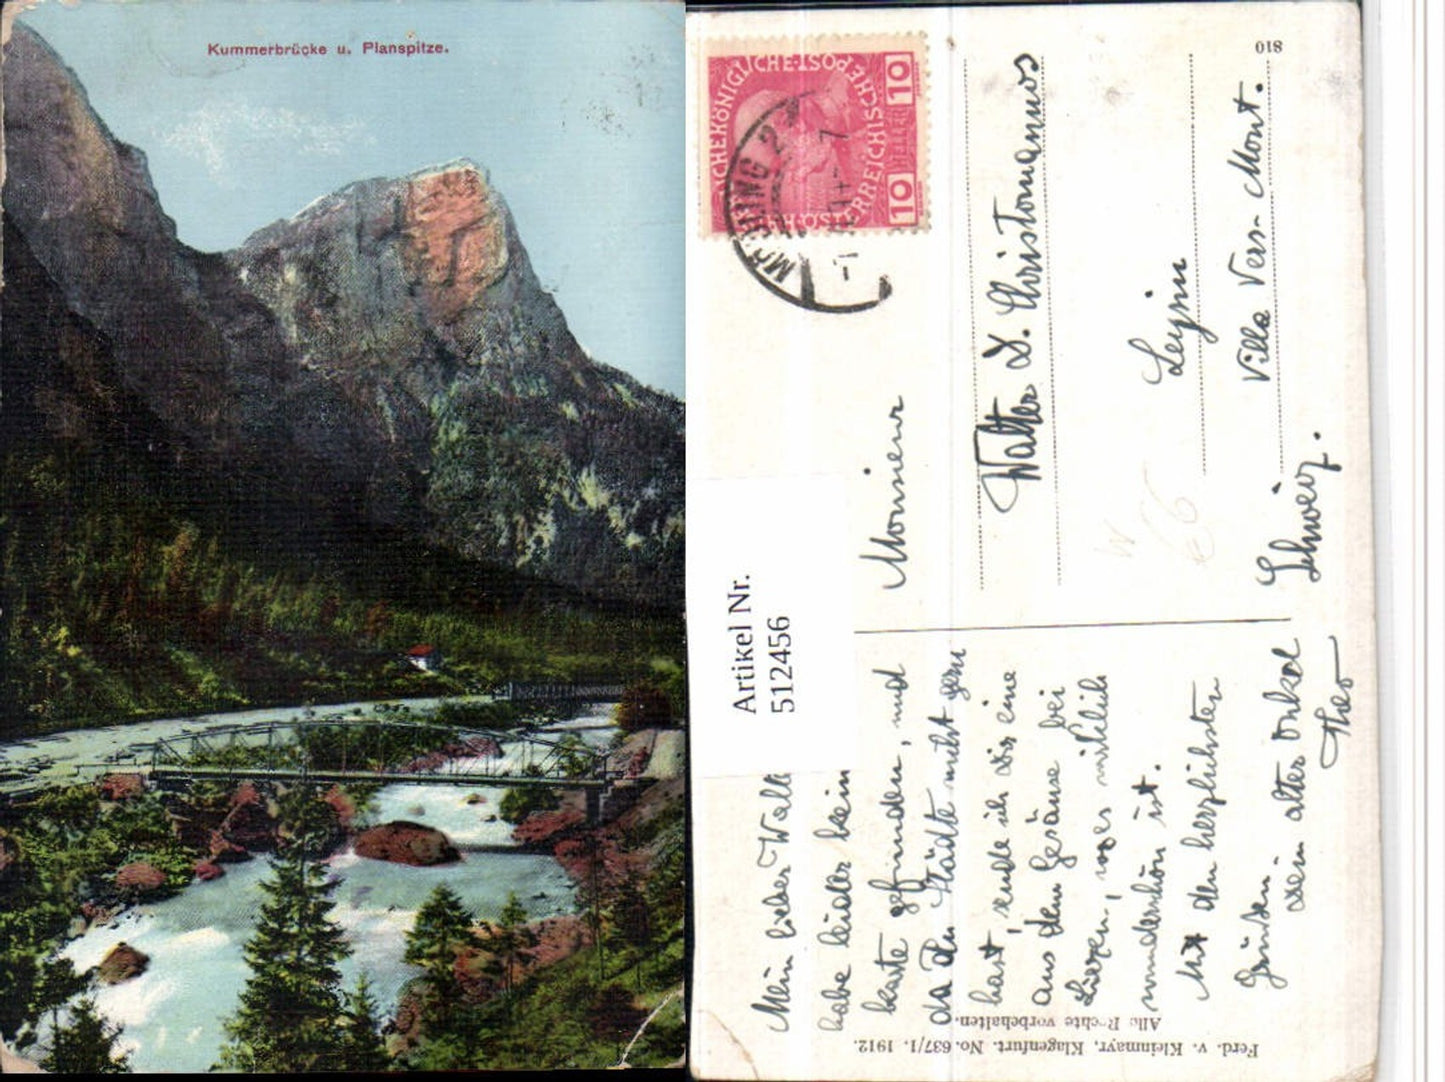 Kummerbrücke u. Planspitze.
810
OCHEKÖNIGLICHE·ÖSTERREICHISCHE·PO
10 HELLER 10
Artikel Nr.
512456
Monsieur
Walter D. Christomannos
Leysin
Villa Vers-Mont.
Schweiz.
Mein lieber Walt
habe leider kein
karte gefunden, und
da Du Städte nicht gern
hast, sende ich Dir eine
aus dem Gesäuse bei
Liezen, wo es
wunderschön ist.
Mit den herzlichsten
Grüßen
Dein alter Onkel
Theo
Ferd. v. Kleinmayr, Klagenfurt. No. 637/1. 1912.
Alle Rechte vorbehalten.